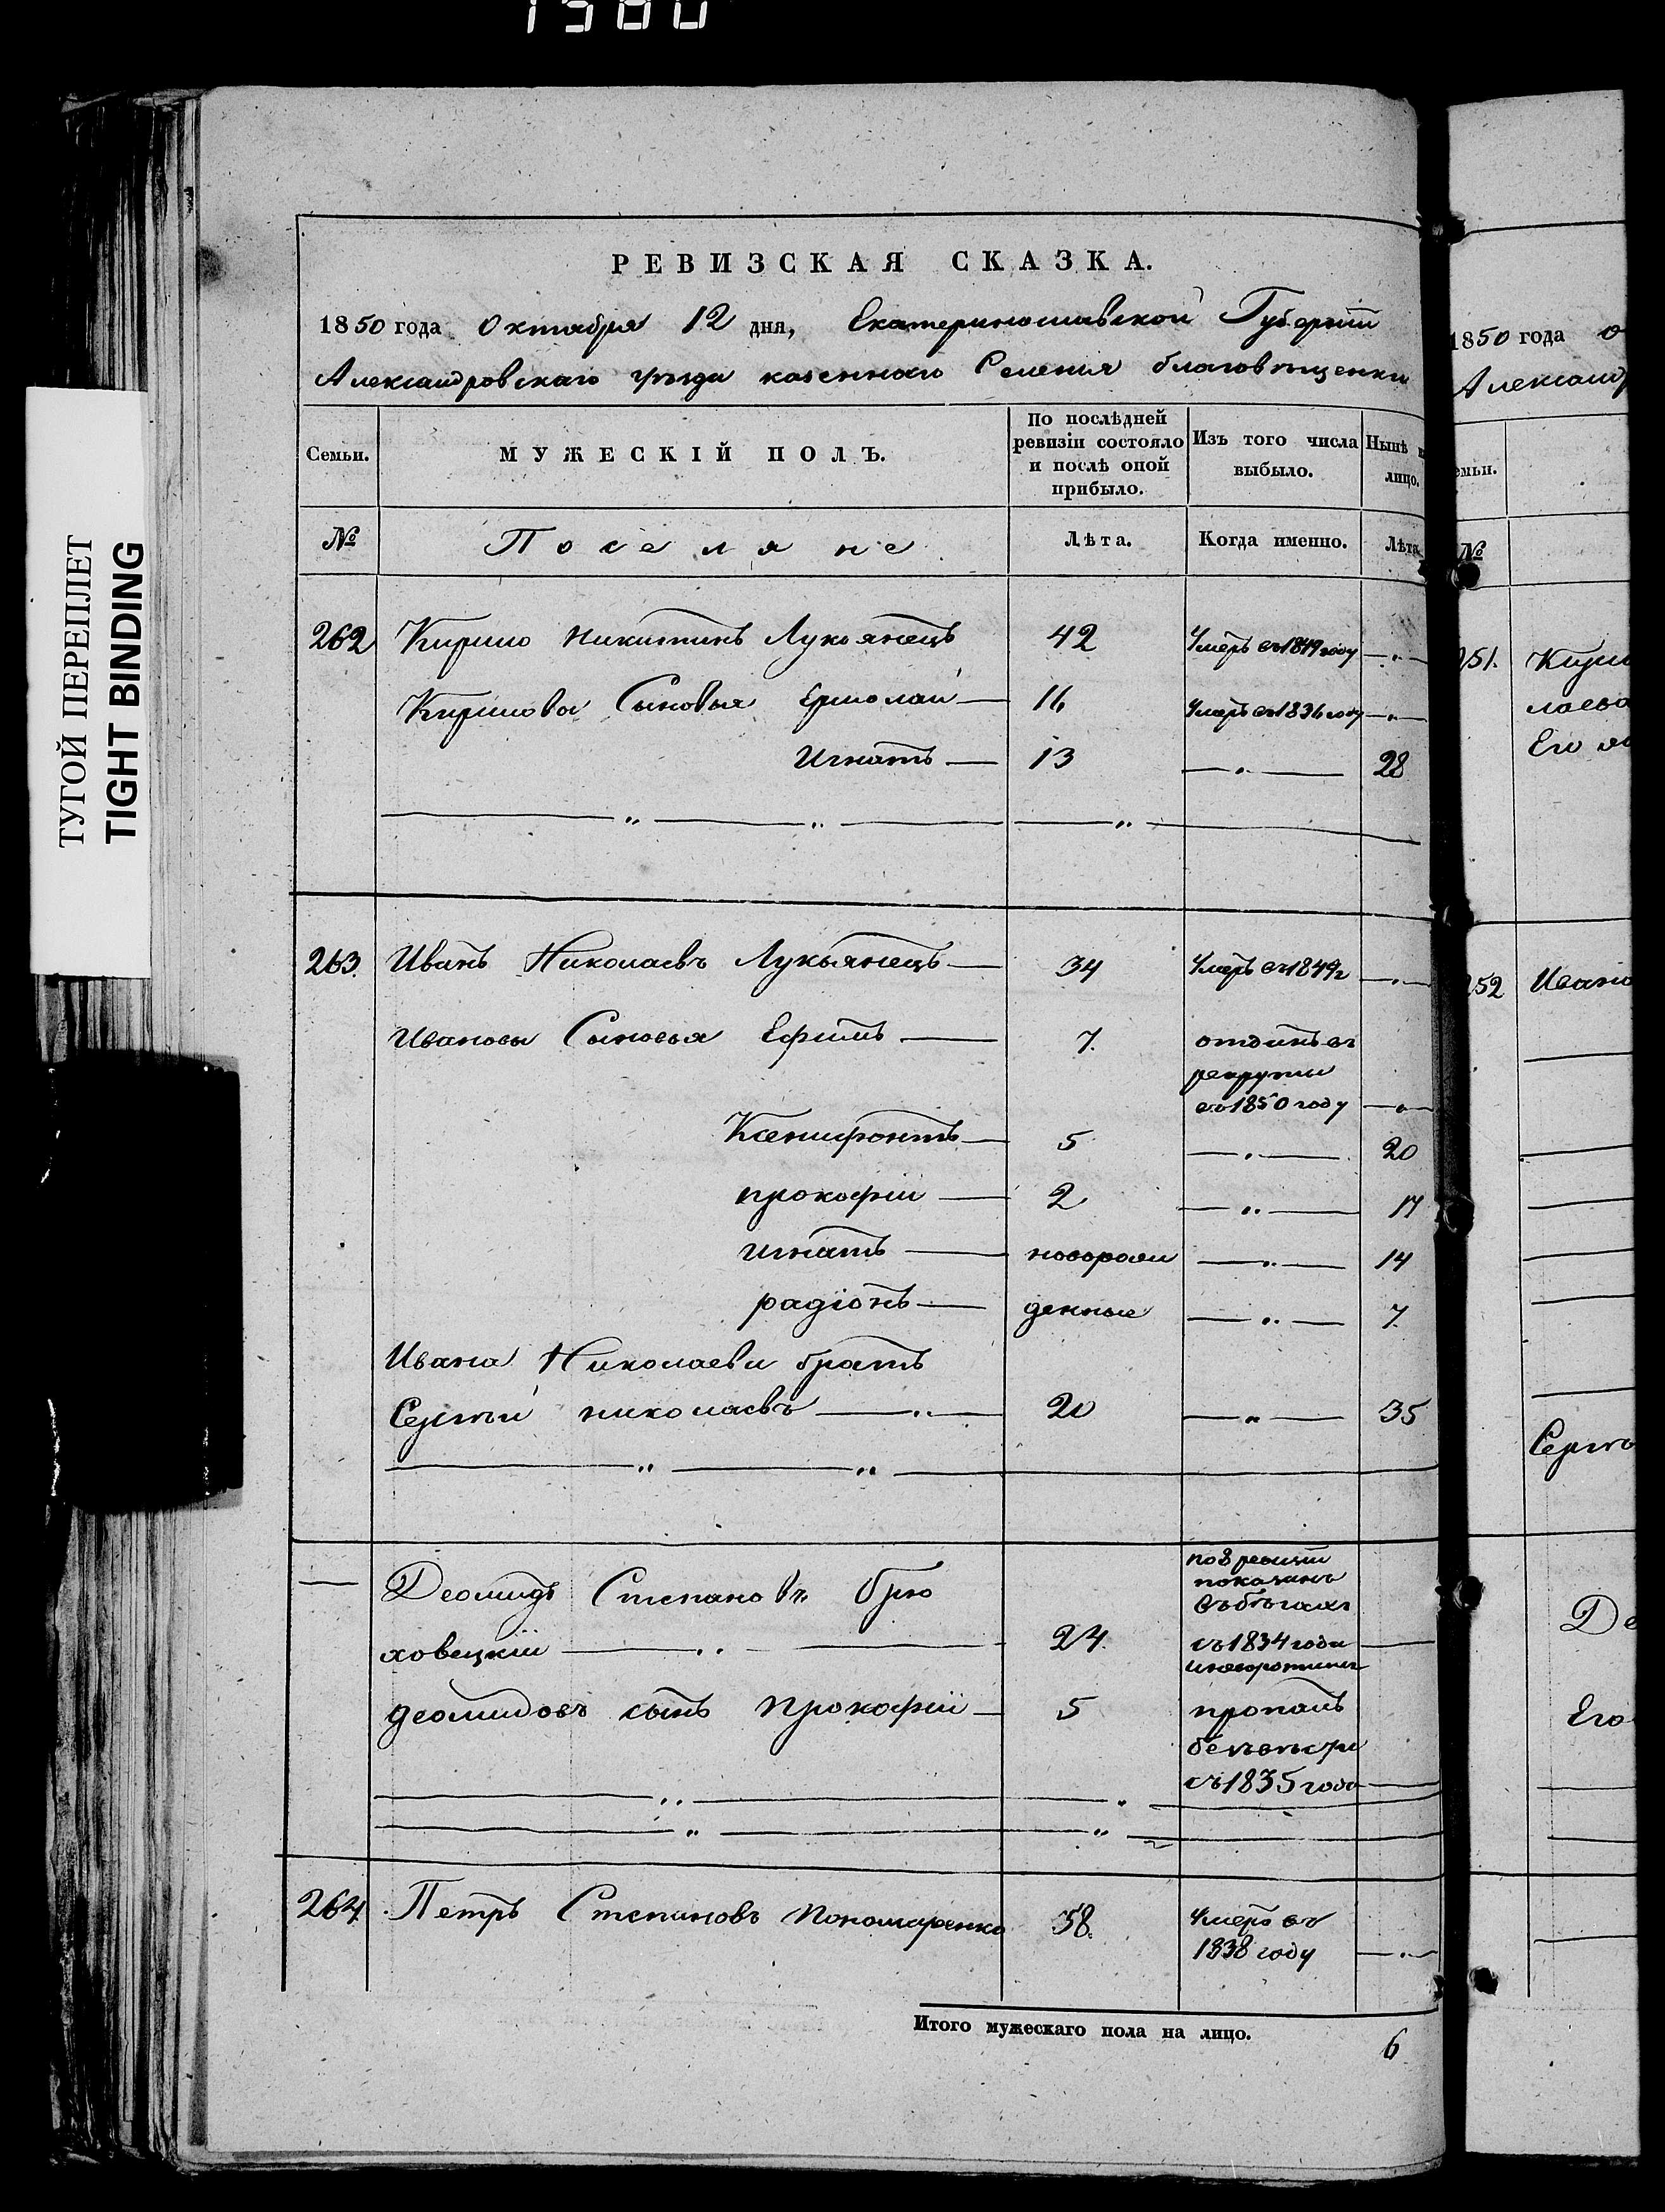 1580
ТУГОЙ ПЕРЕПЛЕТ
TIGHT BINDING
РЕВИЗСКАЯ СКАЗКА.
1850 года Октября 12 дня, Екатеринославской Губерніи
Александровскаго уѣзда казеннаго Селенія благовѣщенки
Семьи. МУЖЕСКІЙ ПОЛЪ. По послѣдней ревизіи состояло и послѣ оной прибыло. Изъ того числа выбыло. Нынѣ на лицо.
№ Поселяне Лѣта. Когда именно. Лѣта
262 Кирило никитинъ Лукьянецъ 42 Умеръ въ 1849 году —"—
Кирилова Сыновья Ермолай — 11 Умеръ въ 1836 году —"—
Игнатъ — 13 —"— 28
263. Иванъ Николаевъ Лукьянецъ — 34 Умеръ въ 1849 г —"—
Ивановы Сыновья Ефимъ — 7. отданъ въ
рекруты
въ 1850 году —"—
Ксенифонтъ — 5 —"— 20
прокофій — 2 —"— 17
игнатъ — новорож —"— 14
радіонъ — денные —"— 7.
Ивана Николаева братъ
Сергѣй николаевъ —"— 20 —"— 35
— Деомидъ Степановъ брю
ховецкій —"— 24
по 8 ревизіи
показанъ
въ бѣгахъ
съ 1834 года —
деомидовъ сынъ прокофій — 5 пропалъ
безъ вѣсти
съ 1835 года —
264. Петръ Степановъ пономаренко 58. Умеръ въ
1838 году —"—
Итого мужескаго пола на лицо. 6
1850 года о
Александр
емьи.
№
251. Кирил
лаева
Его
252 Ивано
Сергѣ
Де
Его